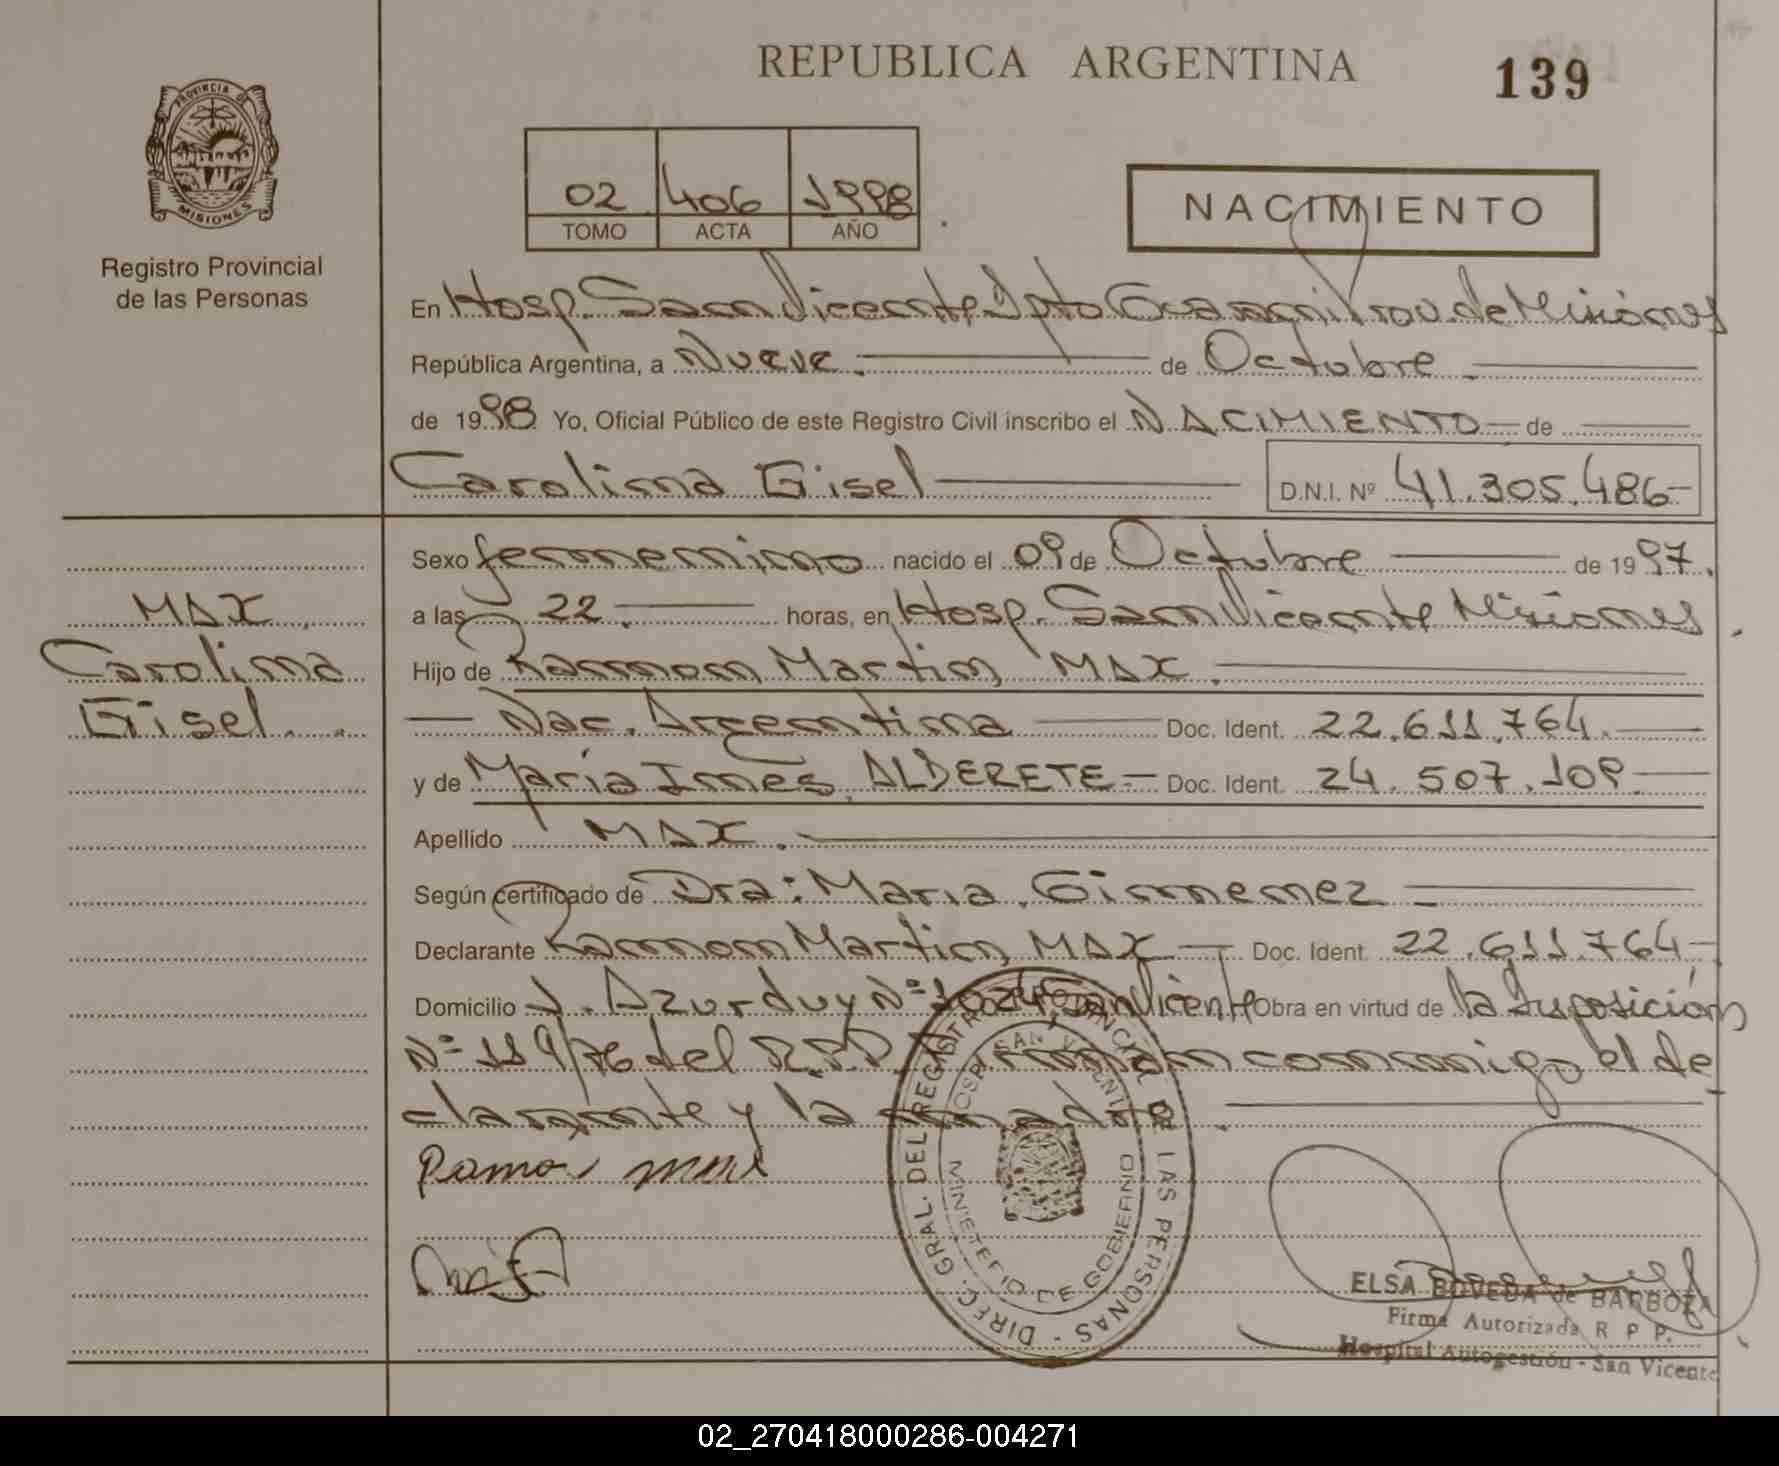 REPUBLICA ARGENTINA
139
PROVINCIA DE
MISIONES
Registro Provincial
de las Personas
02 406 1998
TOMO ACTA AÑO
NACIMIENTO
En Hosp. San Vicente Dpto Guaraní Prov. de Misiones
República Argentina, a Nueve. de Octubre
de 1998 Yo, Oficial Público de este Registro Civil inscribo el NACIMIENTO de
Carolina Gisel D.N.I. Nº 41.305.486
Sexo femenino nacido el 09 de Octubre de 1997.
a las 22. horas, en Hosp. San Vicente Misiones.
Hijo de Ramon Martin MAX.
Nac. Argentina Doc. Ident. 22.611.764.
y de María Ines ALDERETE Doc. Ident. 24.507.109
Apellido MAX.
Según certificado de Dra: Maria Gimenez
Declarante Ramon Martin MAX Doc. Ident. 22.611.764
Domicilio J. Azurduy Nº San Vicente Obra en virtud de la disposición
Nº 119/76 del R.P.P. Firman conmigo el de
clarante y la
MAX
Carolina
Gisel
Ramon
DIREC. GRAL. DEL REGISTRO PROVINCIAL DE LAS PERSONAS
HOSP. SAN VICENTE
MINISTERIO DE GOBIERNO
ELSA BOVEDA de BARBOZA
Firma Autorizada R P P.
Hospital Autogestión - San Vicente
02_270418000286-004271